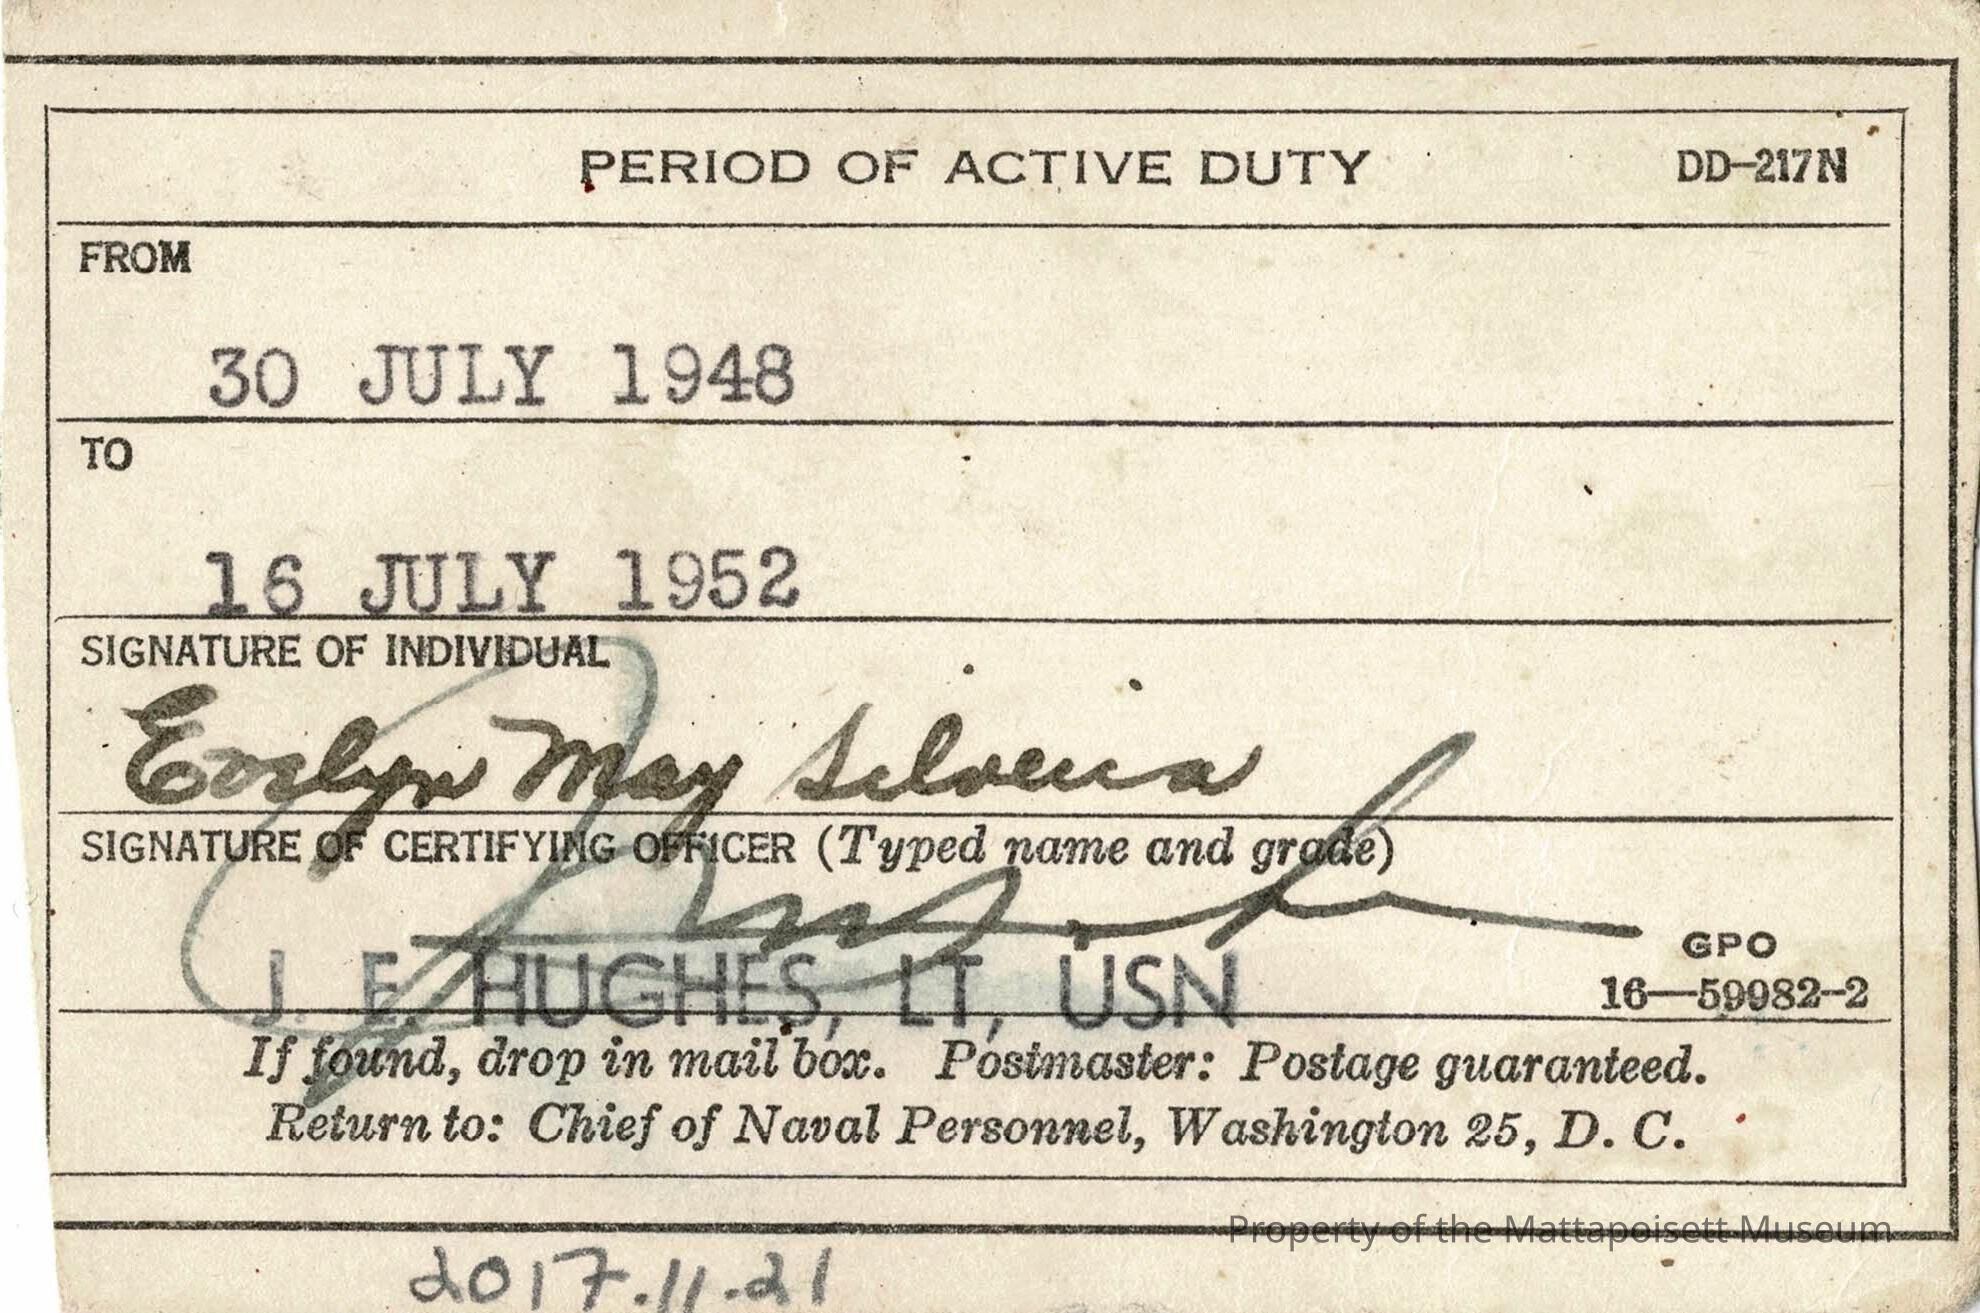 PERIOD OF ACTIVE DUTY DD-217N
FROM
30 JULY 1948
TO
16 JULY 1952
SIGNATURE OF INDIVIDUAL
Evelyn May Silveira
SIGNATURE OF CERTIFYING OFFICER (Typed name and grade)
J. E. HUGHES, LT, USN
GPO
16—59982-2
If found, drop in mail box. Postmaster: Postage guaranteed.
Return to: Chief of Naval Personnel, Washington 25, D. C.
Property of the Mattapoisett Museum
2017.11.21